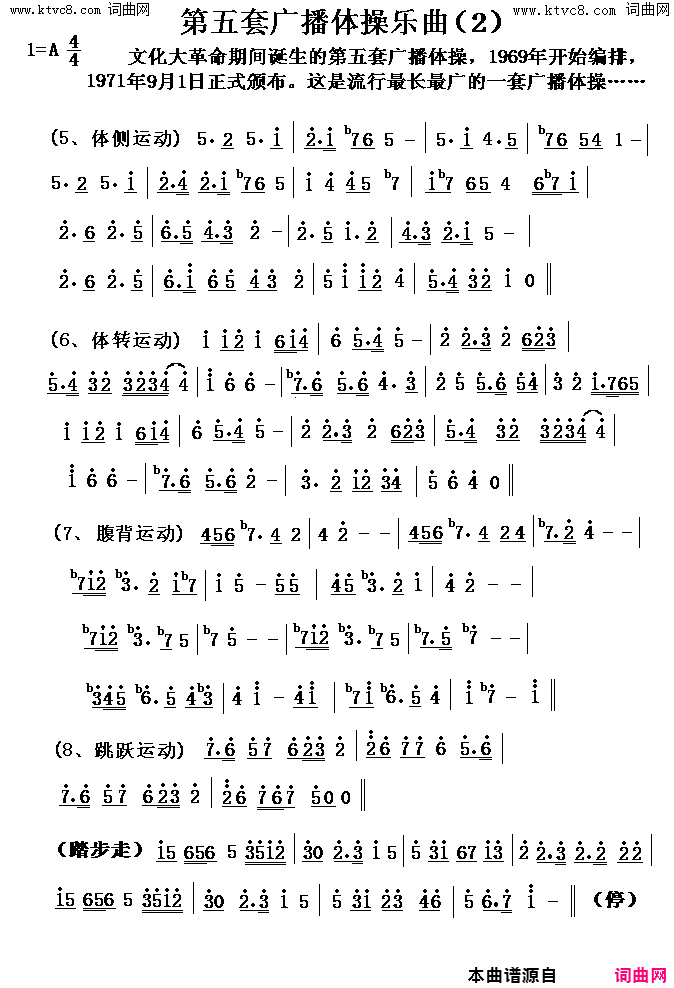 www.ktvc8.com 词曲网 www.ktvc8.com 词曲网
第五套广播体操乐曲(2)
1=A 4/4
文化大革命期间诞生的第五套广播体操，1969年开始编排，
1971年9月1日正式颁布。这是流行最长最广的一套广播体操······
(5、体侧运动) 5·2 5·i | 2·i b76 5 - | 5·i 4·5 | b76 54 1 - |
5·2 5·i | 2·4 2·i b76 5 | i 4 45 b7 | ib7 65 4 6b7i |
2·6 2·5 | 6·5 4·3 2 - | 2·5 i·2 | 4·3 2·i 5 - |
2·6 2·5 | 6·i 65 43 2 | 5i i2 4 | 5·4 32 i 0 ‖
(6、体转运动) i i2 i 6i4 | 6 5·4 5 - | 2 2·3 2 623 |
5·4 32 3234 4 | i 6 6 - | b7·6 5·6 4·3 | 2 5 5·6 54 | 3 2 i·765 |
i i2 i 6i4 | 6 5·4 5 - | 2 2·3 2 623 | 5·4 32 3234 4 |
i 6 6 - | b7·6 5·6 2 - | 3·2 i2 34 | 5 6 4 0 ‖
(7、腹背运动) 456 b7·4 2 | 4 2 - - | 456 b7·4 24 | b7·2 4 - - |
b7i2 b3·2 ib7 | i 5 - 55 | 45 b3·2 i | 4 2 - - |
b7i2 b3·b7 5 | b7 5 - - | b7i2 b3·b7 5 | b7·5 b7 - - |
b345 b6·5 4b3 | 4 i - 4i | b7i b6·5 4 | i b7 - i ‖
(8、跳跃运动) 7·6 57 623 2 | 26 77 6 5·6 |
7·6 57 623 2 | 26 767 500 ‖
(踏步走) i5 656 5 35i2 | 30 2·3 i 5 | 5 3i 67 i3 | 2 2·3 2·2 22 |
i5 656 5 35i2 | 30 2·3 i 5 | 5 3i 23 6 | 5 6·7 i - ‖ (停)
本曲谱源自 词曲网